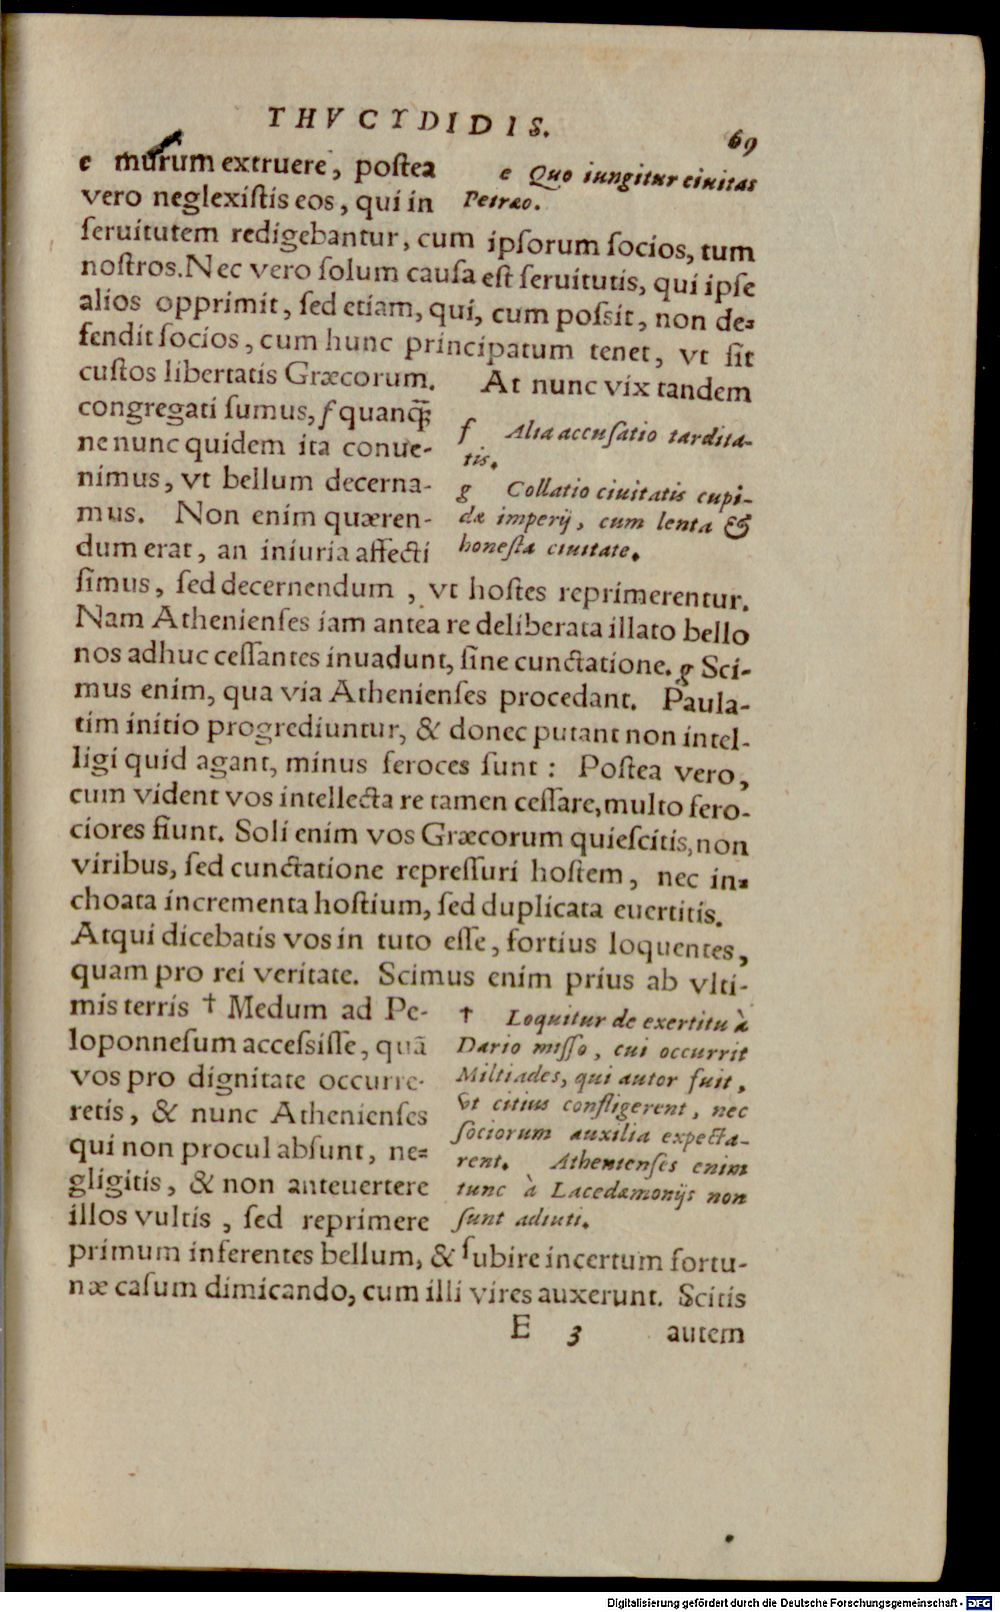 THVCYDIDIS.
69
e murum extruere, postea
vero neglexistis eos, qui in
e Quo iungitur ciuitas
Petræo.
seruitutem redigebantur, cum ipsorum socios, tum
nostros. Nec vero solum causa est seruitutis, qui ipse
alios opprimit, sed etiam, qui, cum possit, non de=
fendit socios, cum hunc principatum tenet, vt sit
custos libertatis Græcorum. At nunc vix tandem
congregati sumus, f quanq̃;
ne nunc quidem ita conue-
nimus, vt bellum decerna-
mus. Non enim quæren-
dum erat, an iniuria affecti
f Alia accusatio tardita-
tis.
g Collatio ciuitatis cupi-
dæ imperij, cum lenta &
honesta ciuitate.
simus, sed decernendum, vt hostes reprimerentur.
Nam Athenienses iam antea re deliberata illato bello
nos adhuc cessantes inuadunt, sine cunctatione. g Sci-
mus enim, qua via Athenienses procedant. Paula-
tim initio progrediuntur, & donec putant non intel-
ligi quid agant, minus feroces sunt: Postea vero,
cum vident vos intellecta re tamen cessare, multo fero-
ciores fiunt. Soli enim vos Græcorum quiescitis, non
viribus, sed cunctatione repressuri hostem, nec in=
choata incrementa hostium, sed duplicata euertitis.
Atqui dicebatis vos in tuto esse, fortius loquentes,
quam pro rei veritate. Scimus enim prius ab vlti-
mis terris † Medum ad Pe-
loponnesum accessisse, quã
vos pro dignitate occurre-
retis, & nunc Athenienses
qui non procul absunt, ne=
gligitis, & non anteuertere
illos vultis, sed reprimere
† Loquitur de exertitu à
Dario misso, cui occurrit
Miltiades, qui autor fuit,
vt citius confligerent, nec
sociorum auxilia expecta-
rent. Athenienses enim
tunc à Lacedæmonijs non
sunt adiuti.
primum inferentes bellum, & subire incertum fortu-
næ casum dimicando, cum illi vires auxerunt. Scitis
E 3
autem
Digitalisierung gefördert durch die Deutsche Forschungsgemeinschaft - DFG